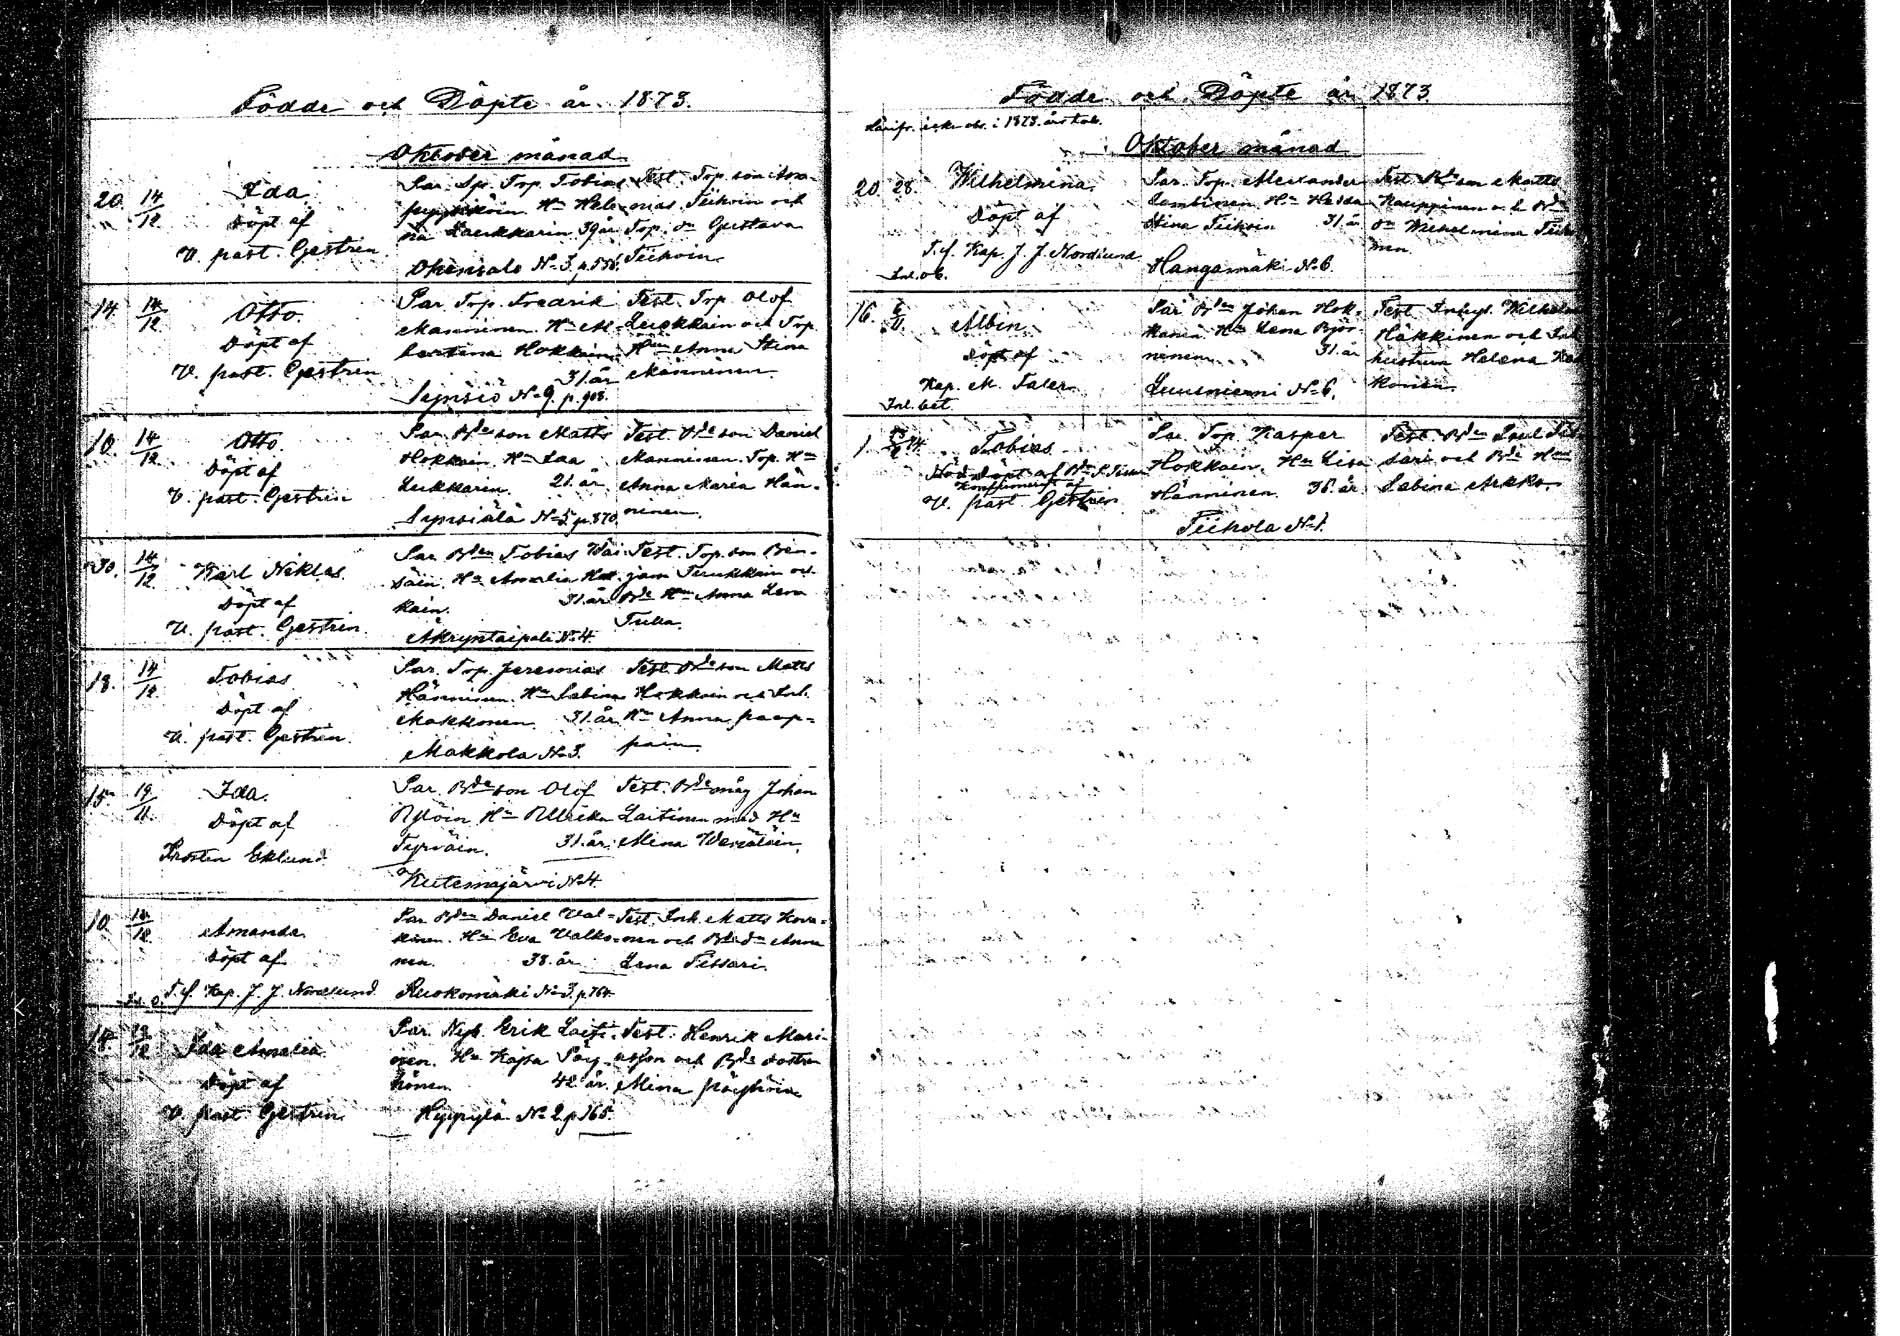 Födde och Döpte år 1873.
Oktober månad
20. 14/12 Ida
Döpt af
V. past. Gestrin
Par. Sp. Torp. Tobias
Hn Hele-
na Laukkarin 39 år
Okensalo No 3. p.556.
Test. Torp. son
Tiihoin och
Torp. dr Gustava
Tiihoin.
14. 14/12 Otto.
Döpt af
V. past. Gestrin
Par. Torp. Fredrik
Manninen. Hn Al-
bertina Hokkain
31. år
Synsiö No 9. p.908.
Test. Torp. Olof
Luukkain och Torp.
Hun Anna Stina
Manninen.
10. 14/12 Otto.
Döpt af
V. past. Gestrin
Par. Bde son Matts
Hokkain. Hn Ida
Leukkarin. 21. år
Synsiälä No 5. p.870.
Test. Bde son Daniel
Manninen. Torp. Hn
Anna Maria Hän-
ninen.
30. 14/12 Karl Niklas.
Döpt af
V. past. Gestrin.
Par. Bden Tobias Wai-
säin. Hn Amalia Hok-
kain. 31. år
Äkryntaipale No 4.
Test. Torp. son Ben-
jam Turukkain och
Bde Hun Anna Lena
18. 14/12 Tobias
Döpt af
V. past. Gestrin.
Par. Torp. Jeremias
Hänninen. Hn Sabina
Makkonen 31. år
Makkola No 3.
Test. Bde son Matts
Hokkain och Inh.
Hn Anna paap-
pain.
15. 19/11. Ida.
Döpt af
Prosten Eklund.
Par. Bde son Olof
Ylöin Hn Ullrika
Tyrväin. 31. år.
Kutemajärvi No 4.
Test. Bde måg Johan
Laitinen med Hn
Mina
10. 14/12 Amanda.
Döpt af
T.f. Kap. J. J. Nordlund
Par. Bden Daniel Val-
kinen. Hn Eva Valko-
nen. 38. år
Ruokomäki No 3. p.764.
Test. Inh. Matts Kova-
nen och Bde dr Anna
Lena Tissari.
14. Ida Amalia
Döpt af
V. past. Gestrin
Par. Nyb. Erik Laiti-
nen. Hn Kajsa Pöy-
hönen. 42 år.
Hyypylä No 2. p.165.
Test. Henrik Mari-
och Bde dottren
Mina pöyhöin
Födde och Döpte år 1873.
i 1873. års tab.
Oktober månad
20. 28. Wilhelmina.
Döpt af
T.f. Kap. J. J. Nordlund
Par. Torp. Alexander
Lambinen. Hn Hedda
Stina Tiihoin 31. år
Hangamäki No 6.
Test. Bde son Matts
Kauppinen och Bde
dr Wilhelmina Tiiho
nen.
16. Albin.
Döpt af
Kap. M. Taler
Par Bden Johan Hok-
kanen. Hn Lena Björ-
ninen. 31. år
Luusniemi No 6.
Test. Inhys. Wilhelm
Häkkinen och Inh
hustrun Helena
konen.
1. Tobias
Nöd Döpt af
Konfirmerat af
V. past. Gestrin
Par. Torp. Kasper
Hokkain. Hn Lisa
Hänninen. 36. år.
Tiihola No 1.
Test. Bden Paul Tis
sari och Bde Hun
Sabina Arkko.